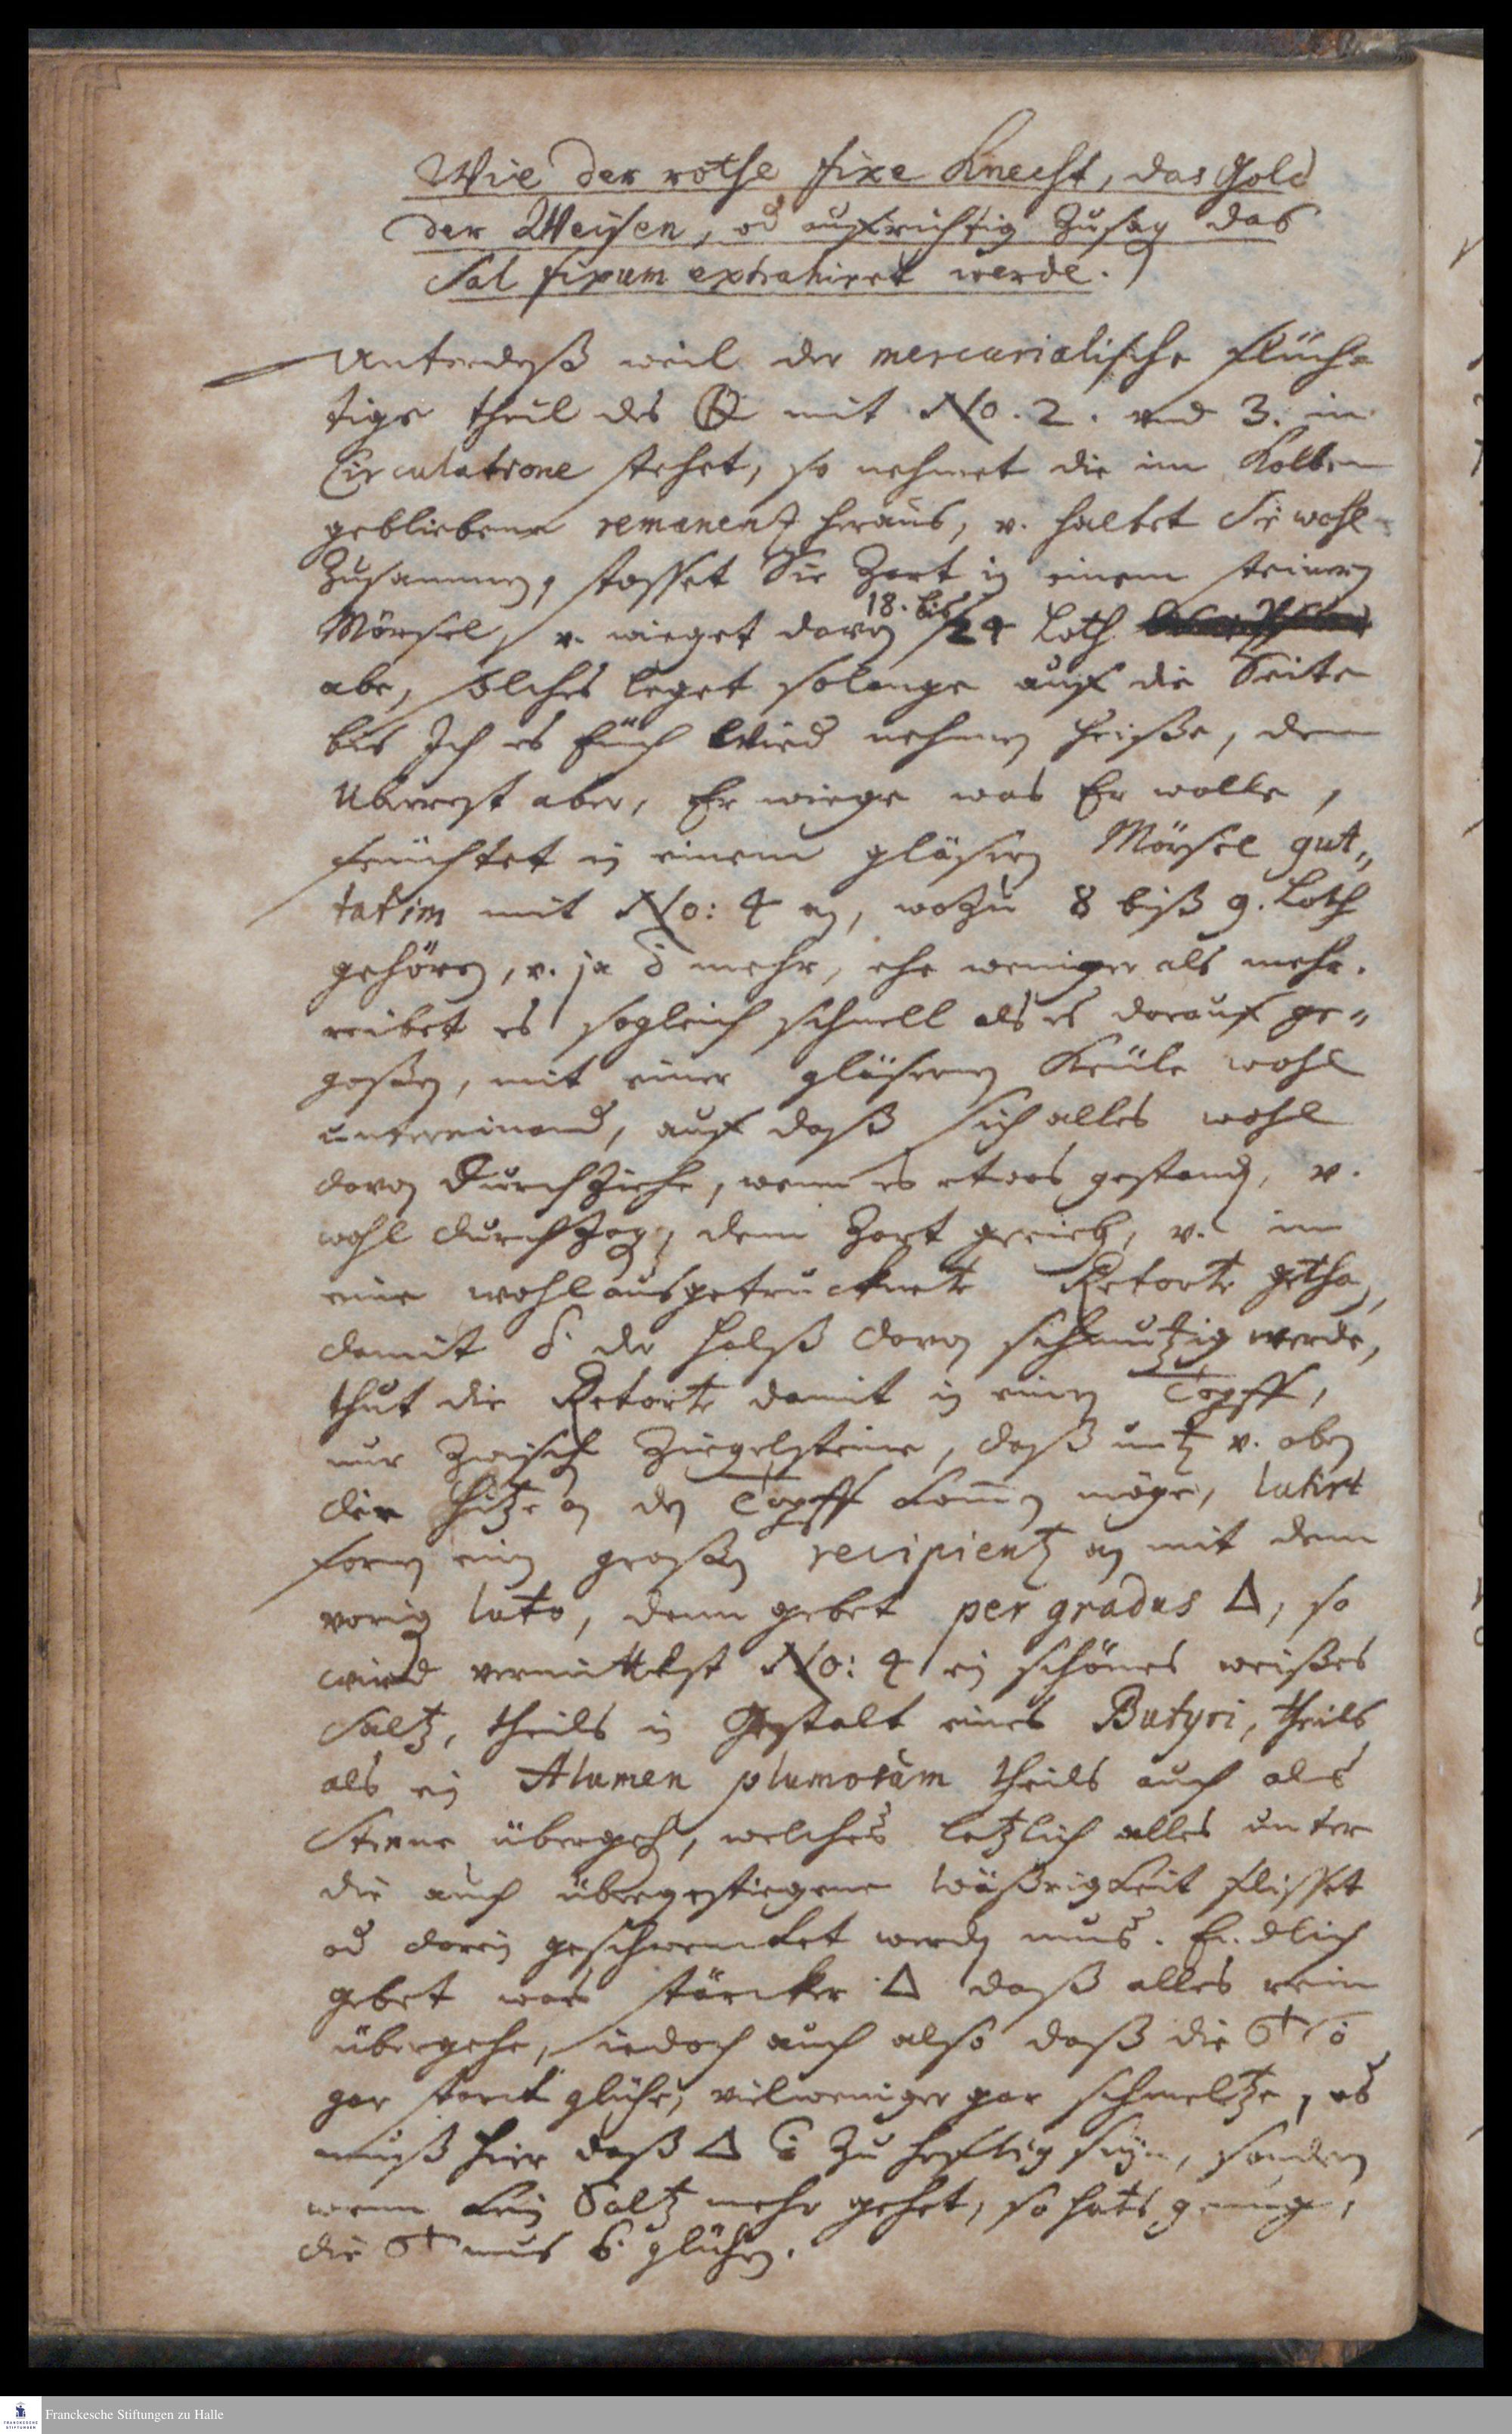 Wie der rothe fixe Knecht, das Gold
der Weysen, od aufrichtig Zusag das
Sal fixum extrahiret werde.
Unterdeß weil der mercurialische flüch-
tige theil des mit No. 2. und 3. in
Circulatione stehet, so nehmet die im Kolben
gebliebene remanenz heraus, v. haltet Sie wohl
Zusammen, stosset Sie Zart in einem steinern
Mörsel, v. wieget davon 18. bis 24 Loth
abe, solches leget solange auf die Seite
bis Ich es Euch Wied nehmen heiße, den
Uberrest aber, Er wiege was Er wolle,
feuchtet in einem gläsern Mörsel gut„
tatim mit No: 4 an, wozu 8 biß 9. Loth
gehören, v. ja mehr, ehe weniger als mehr.
reibet es sogleich schnell als es darauf ge„
goßen, mit einer gläsernen Keule wohl
untereinand, auf daß sich alles wohl
davon durchziehe, wenn es etwas gestanden, v.
wohl durchzogen, denn Zart gerieben, v. in
eine wohlausgetrucknete Retorte gethan,
damit der halß davon schmutzig werde,
thut die Retorte damit in einen Topff,
nur Zwischen Ziegelsteine, daß unten v. oben
die hitze an den Topff kommen möge, lutirt
forn einen großen recipienten an mit dem
vorigen luto, denn gebet per gradus △, so
wird vermittelst No: 4 ein schönes weißes
Saltz, theils in Gestalt eines Butyri, theils
als ein Alumen plumosum theils auch als
Sterne übergehen, welches letzlich alles unter
die auch übergestiegene wäßrigkeit flisset
od darein geschwencket werden mus. Endlich
gebet was stärcker △ daß alles rein
übergehe, iedoch auch also daß die
gar starck glühe, vielweniger gar schmeltze, es
muß hier daß △ Zu hefftig seyn, sondern
wenn kein Saltz mehr gehet, so hats genug,
die mus glühen.
Franckesche Stiftungen zu Halle